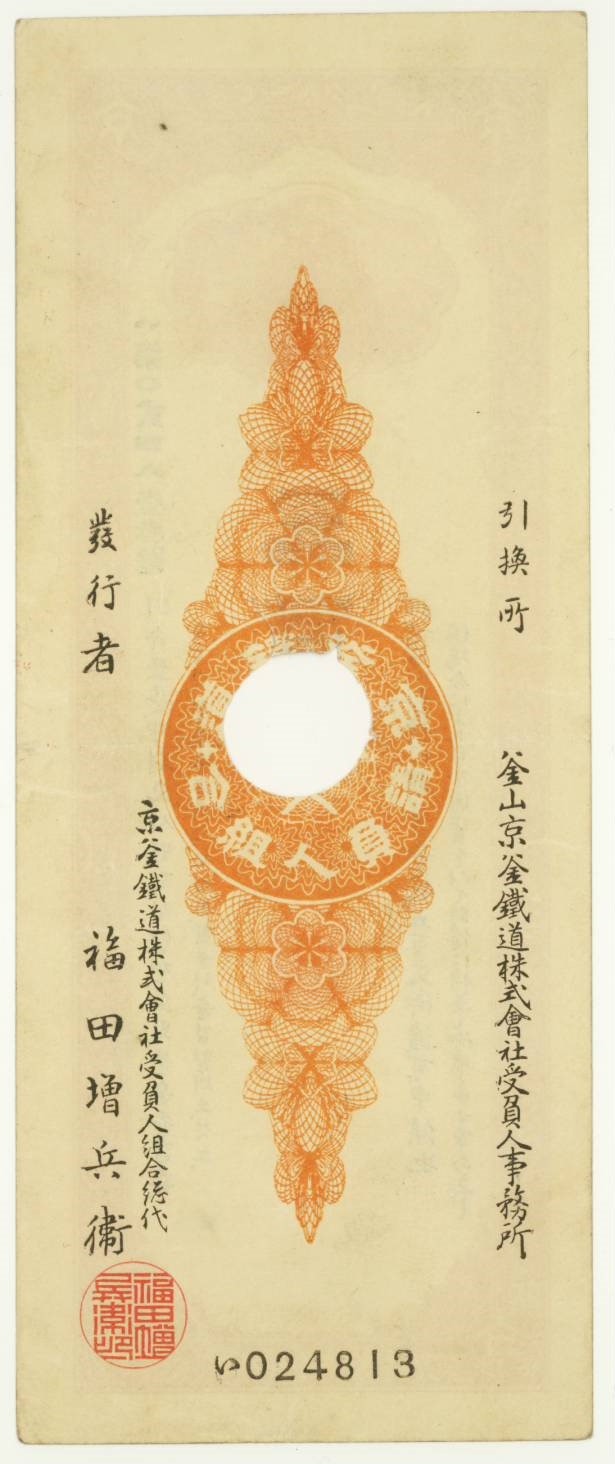 引換所
釜山京釜鐵道株式會社受負人事務所
京釜鐵道
請負人組合
京釜鐵道株式會社受負人組合総代
發行者
福田増兵衞
福田增兵衞印
い024813